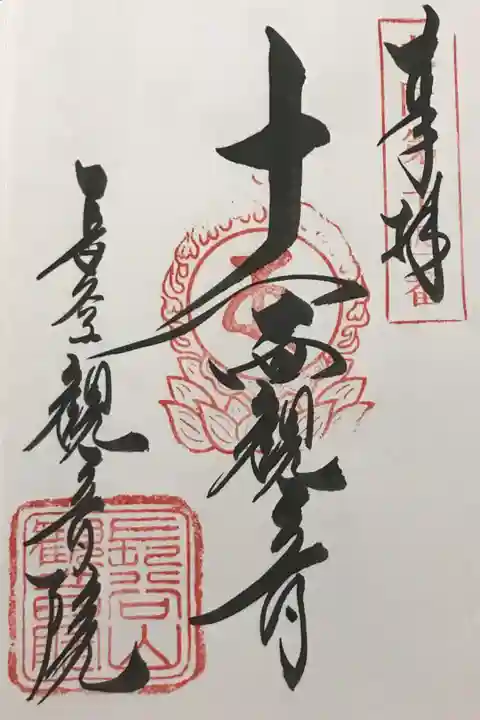 奉拝
十一面観音
観音院
長谷山
觀音院